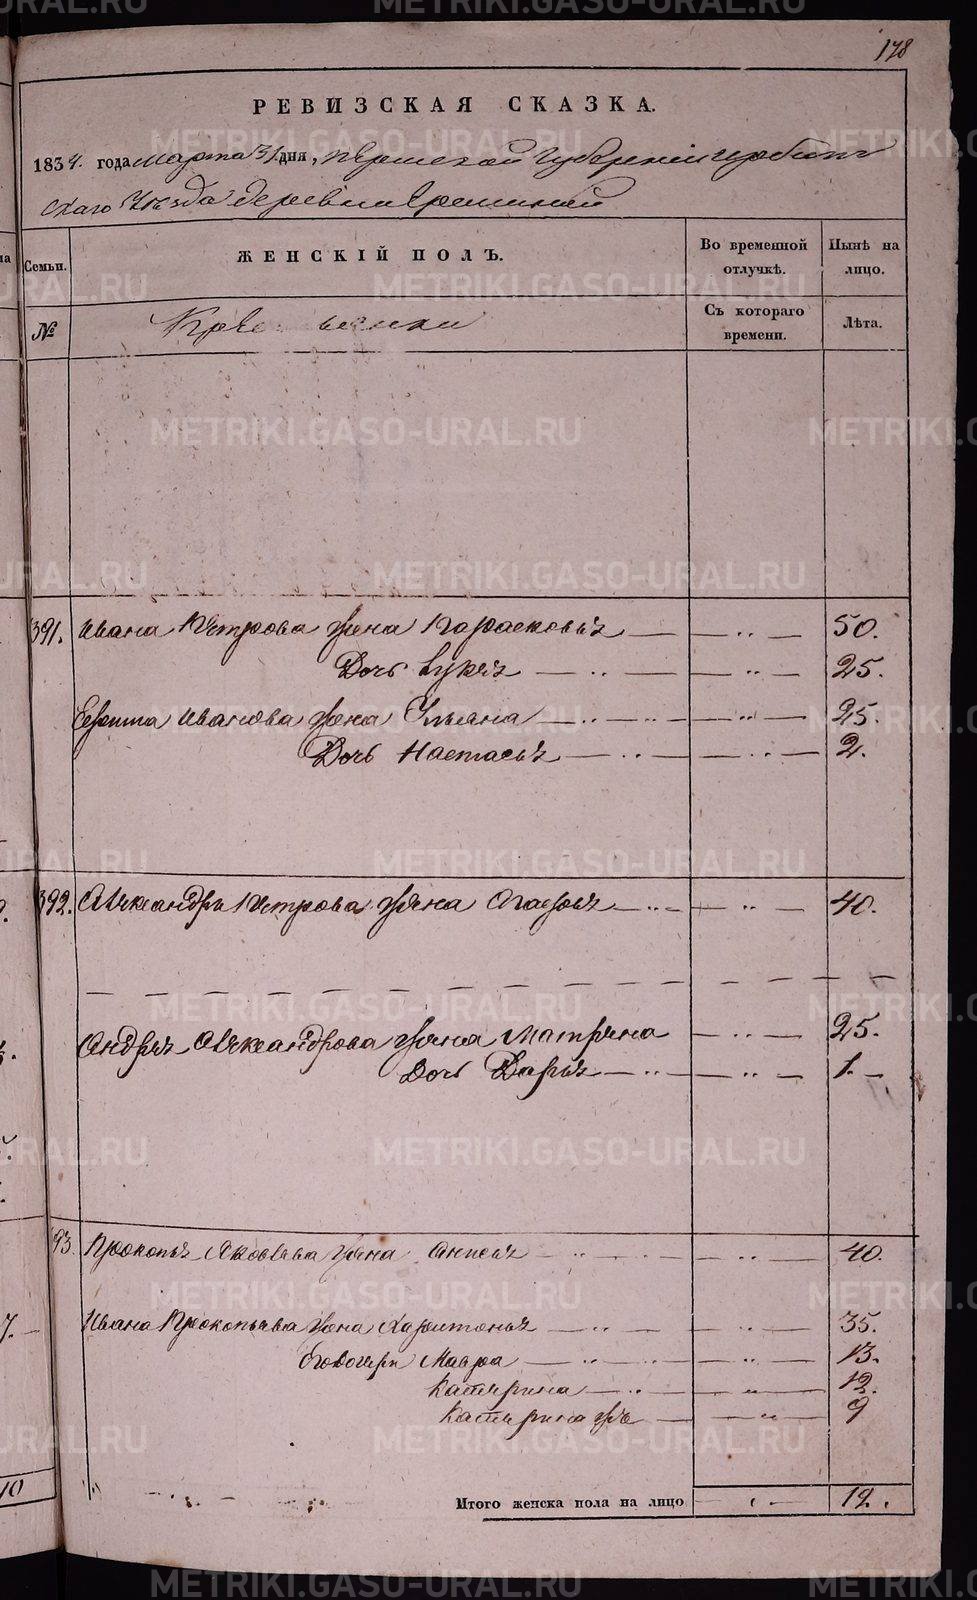 178
РЕВИЗСКАЯ СКАЗКА.
1834. года марта 31 дня, Пермской Губерніи Ирбит
скаго Уезда деревни
Семьи. ЖЕНСКІЙ ПОЛЪ. Во временной отлучкѣ. Нынѣ на лицо.
№ Съ котораго времени. Лѣта.
391. Ивана Петрова жена Парасковья — „ — 50.
Дочь Лукея — „ — 25.
Иванова жена Ульяна — „ — 25.
Дочь Настасья — „ — 2.
392. Александра Петрова жена Агафья — „ — 40.
Андрея Александрова жена Матрена — „ — 25.
Дочь Дарья — „ — 1.
93. Прокопья Яковлева жена Анисья — „ — 40.
Ивана Прокопьева жена Харитонья — „ — 35.
Егодочери Мавра — „ — 13.
Катерина — „ — 12.
Катерина жъ — „ — 9
10
Итого женска пола на лицо — „ — 12.
METRIKI.GASO-URAL.RU